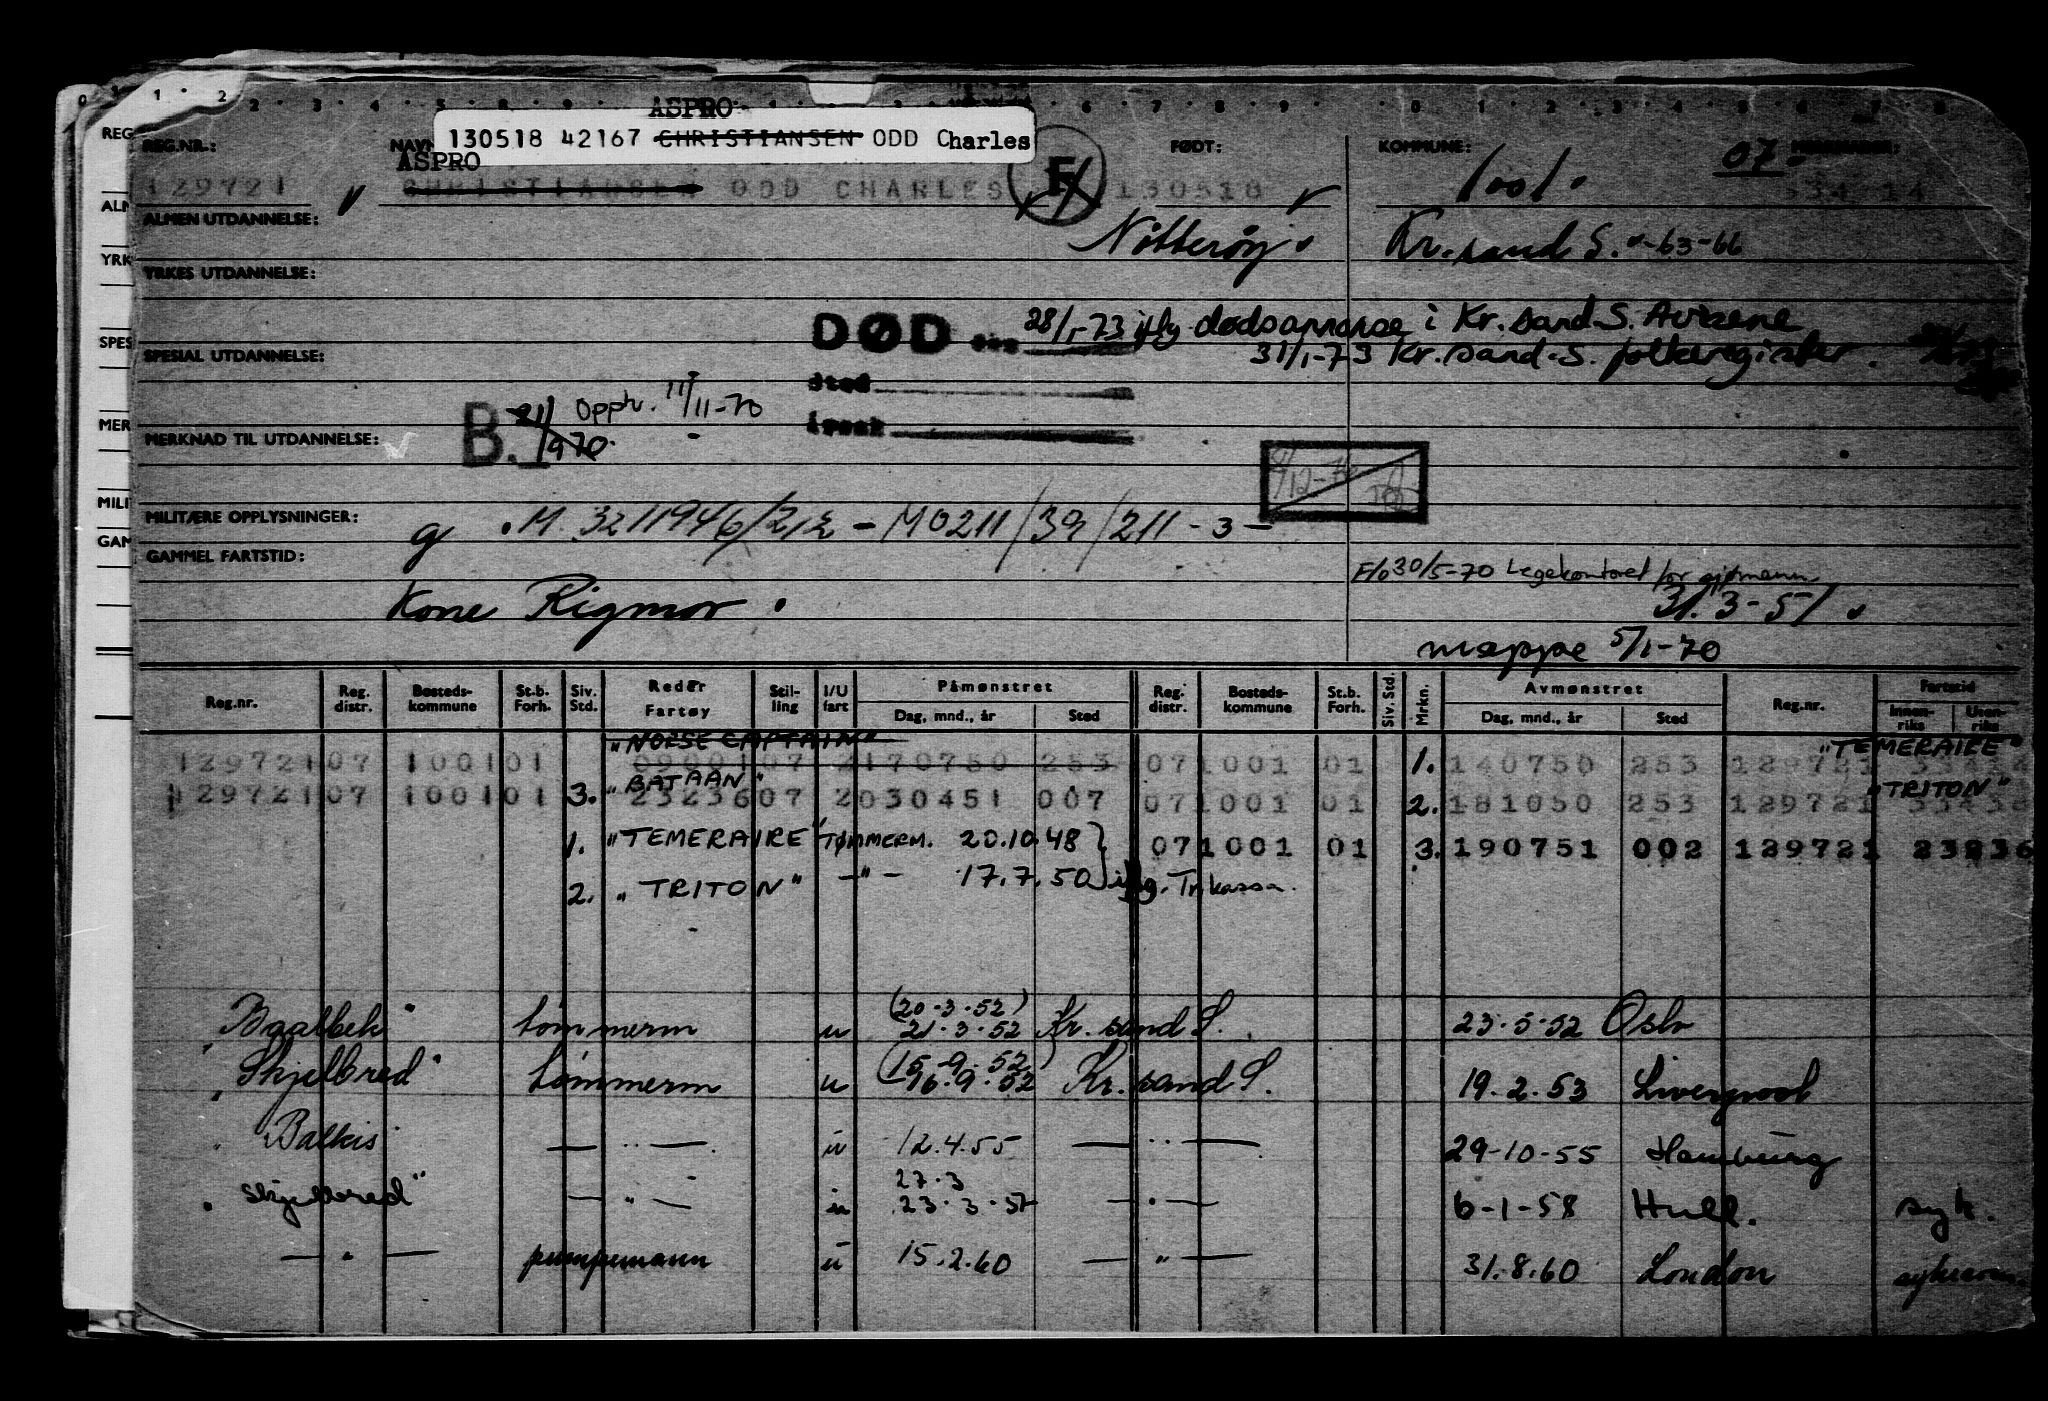 ASPRO
130518 42167 CHRISTIANSEN ODD Charles
REG.NR.: NAVN FØDT: KOMMUNE:
ASPRO
129721 CHRISTIANSEN ODD CHARLES F 130518 1001. 07.
ALMEN UTDANNELSE:
Nøtterøy Kr.sand S. -63-66
YRKES UTDANNELSE:
DØD 28/1-73 iflg. dødsannonse i Kr.sand S. Avisene
31/1-73 Kr.sand-S. folkeregister.
SPESIAL UTDANNELSE:
sted
årsak
B. 21/1 970. Opph. 11/11-70
MERKNAD TIL UTDANNELSE:
MILITÆRE OPPLYSNINGER: M. 3211946/212 - M0211/39/211-3-
GAMMEL FARTSTID:
F/o 30/5-70 Legekontoret for sjømenn
Kone Rigmor.
31.3-51
mappe 5/1-70
Reg.nr. Reg. distr. Bosteds-kommune St.b. Forh. Siv. Std. Reder Fartøy Stil-ling I/U fart Påmønstret Dag, mnd., år Sted Reg. distr. Bosteds-kommune St.b. Forh. Siv. Std. Mrkn. Avmønstret Dag, mnd., år Sted Reg.nr. Fartstid Innen-riks Uten-riks
"NORSE CAPTAIN" "TEMERAIRE"
129721 07 1001 01 0900107 2170750 253 071001 01 1. 140750 253 129721
"BATAAN" "TRITON"
129721 07 1001 01 3. 2323607 2030451 007 071001 01 2. 181050 253 129721
1. "TEMERAIRE" TØMMERM. 20.10.48 071001 01 3. 190751 002 129721 23236
2. "TRITON" -"- 17.7.50 iflg. Tr.kassa.
(20.3.52)
"Baalbek" tømmerm u 21.3.52 Kr.sand S. 23.5.52 Oslo
(15.9.52)
"Skjelbred" tømmerm u 16.9.52 Kr.sand S. 19.2.53 Liverpool
"Balkis" - " - u 12.4.55 - " - 29-10-55 Hamburg
27.3
"Skjelbred" - " - u 23.3.57 - " - 6-1-58 Hull. syk.
- " - pumpemann u 15.2.60 - " - 31.8.60 London